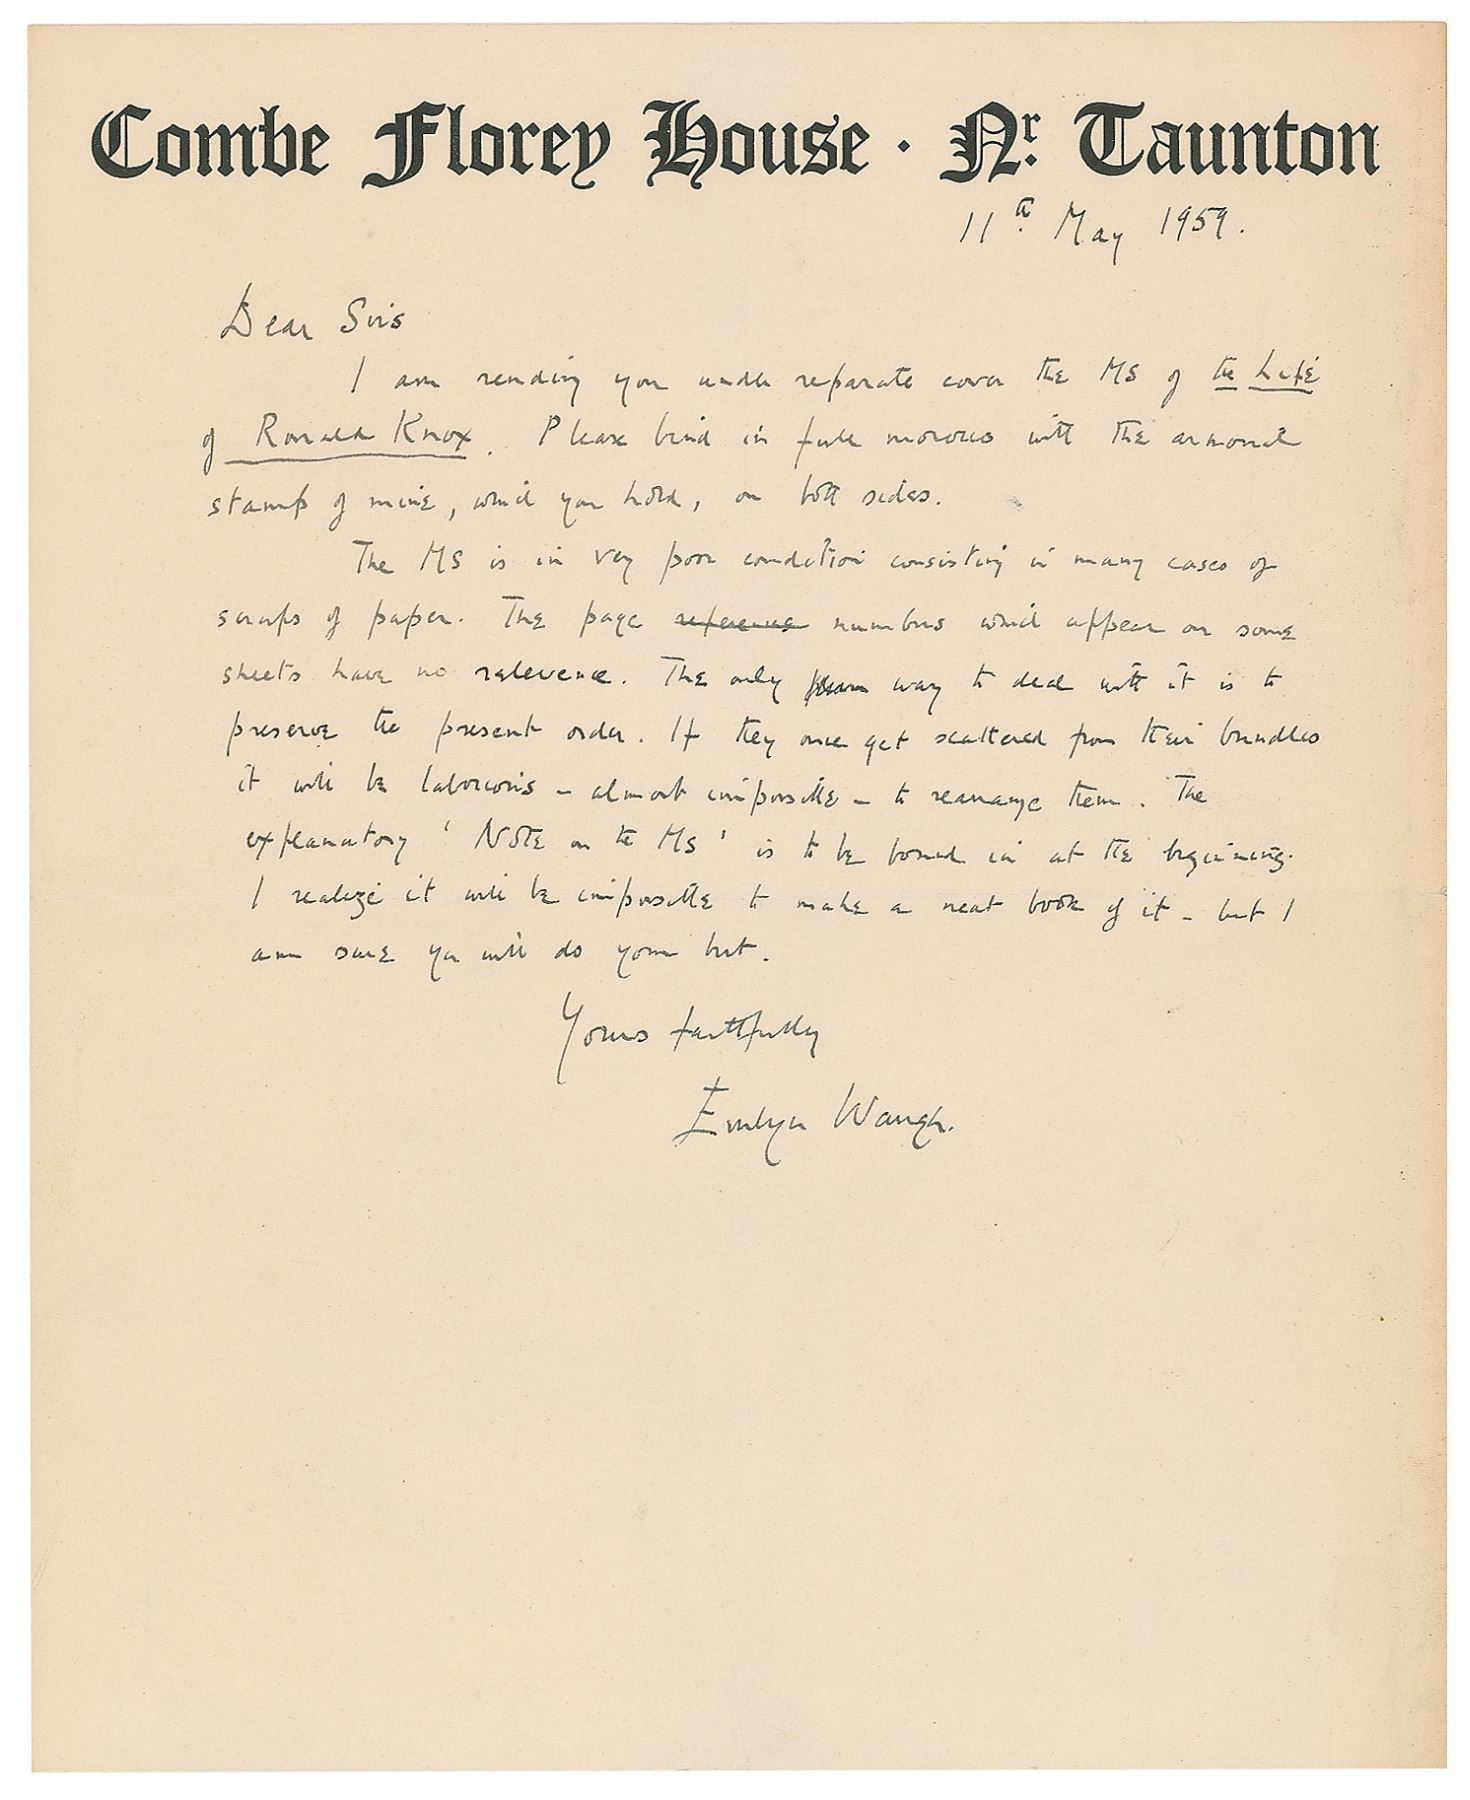 Combe Florey House · Nr. Taunton
11th May 1959.
Dear Sirs
I am sending you under separate cover the MS of the Life
of Ronald Knox. Please bind in full morocco with the armorial
stamp of mine, which you hold, on both sides.
The MS is in very poor condition consisting in many cases of
scraps of paper. The page reference numbers which appear on some
sheets have no relevence. The only way to deal with it is to
preserve the present order. If they once get scattered from their bundles
it will be laborious – almost impossible – to rearrange them. The
explanatory 'Note on the MS' is to be bound in at the beginning.
I realize it will be impossible to make a neat book of it – but I
am sure you will do your best.
Yours faithfully
Evelyn Waugh.